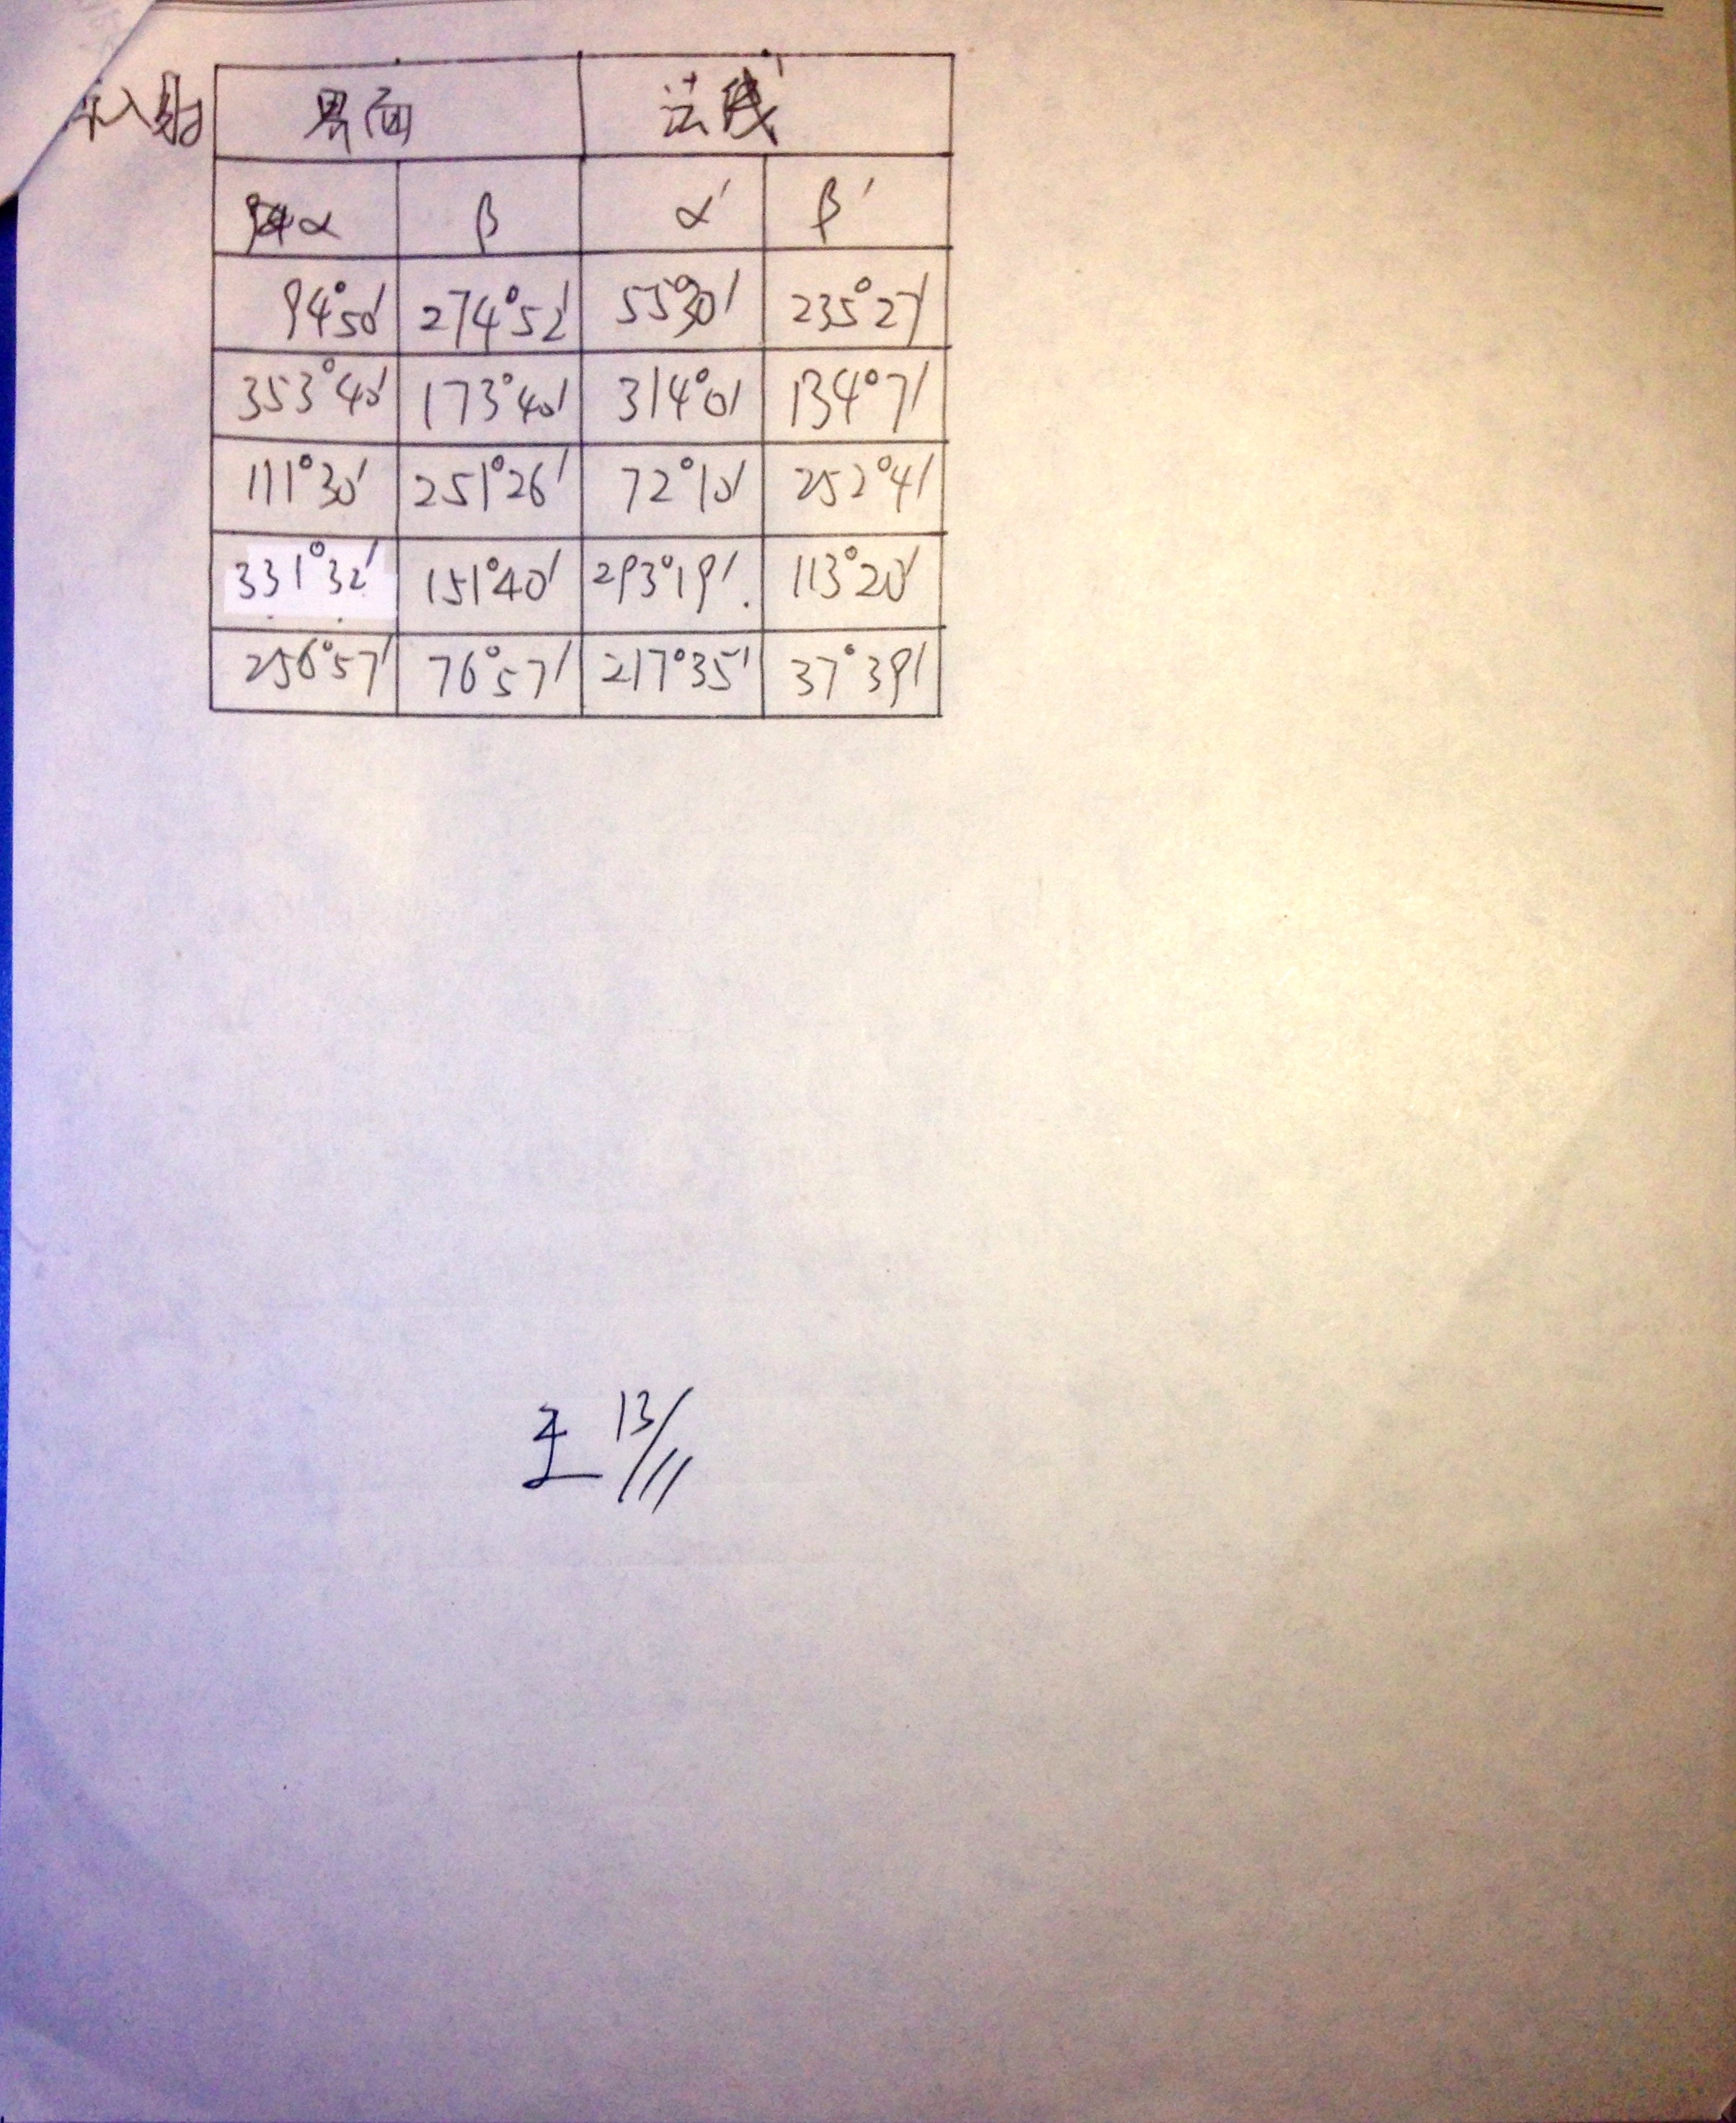 入射 界面 法线
α β α′ β′
94°50′ 274°52′ 55°30′ 235°27′
353°40′ 173°40′ 314°0′ 134°7′
111°30′ 251°26′ 72°10′ 252°4′
331°32′ 151°40′ 293°19′ 113°20′
256°57′ 76°57′ 217°35′ 37°39′
王 13/11